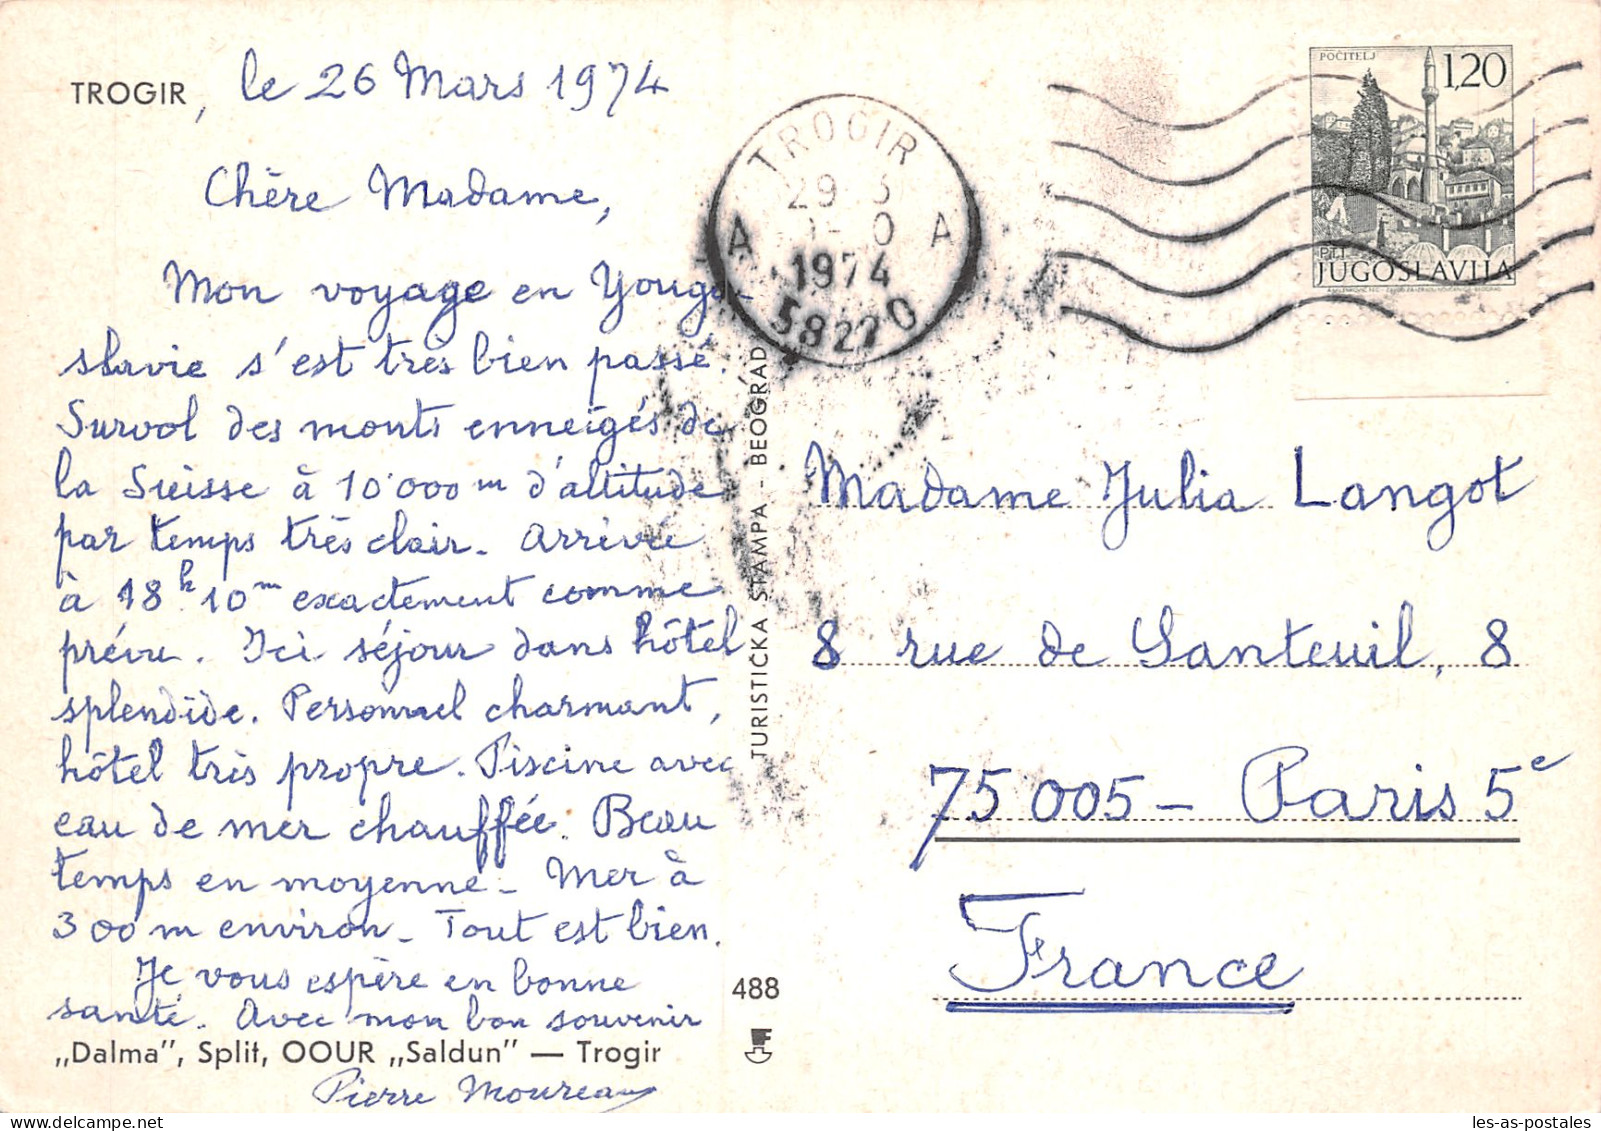 TROGIR, le 26 Mars 1974
Chère Madame,
Mon voyage en Yougo-
slavie s'est très bien passé.
Survol des monts enneigés de
la Suisse à 10'000 m d'altitude
par temps très clair. Arrivée
à 18h 10m exactement comme
prévu. Ici séjour dans hôtel
splendide. Personnel charmant,
hôtel très propre. Piscine avec
eau de mer chauffée. Beau
temps en moyenne - Mer à
300 m environ - Tout est bien.
Je vous espère en bonne
santé. Avec mon bon souvenir
„Dalma”, Split, OOUR „Saldun” — Trogir
Pierre Moureaux
TURISTIČKA ŠTAMPA - BEOGRAD
488
TROGIR
29 3
1974
A A
58220
POČITELJ
1,20
PTT
JUGOSLAVIJA
Madame Julia Langot
8 rue de Santeuil, 8
75 005 - Paris 5e
France
les-as-postales